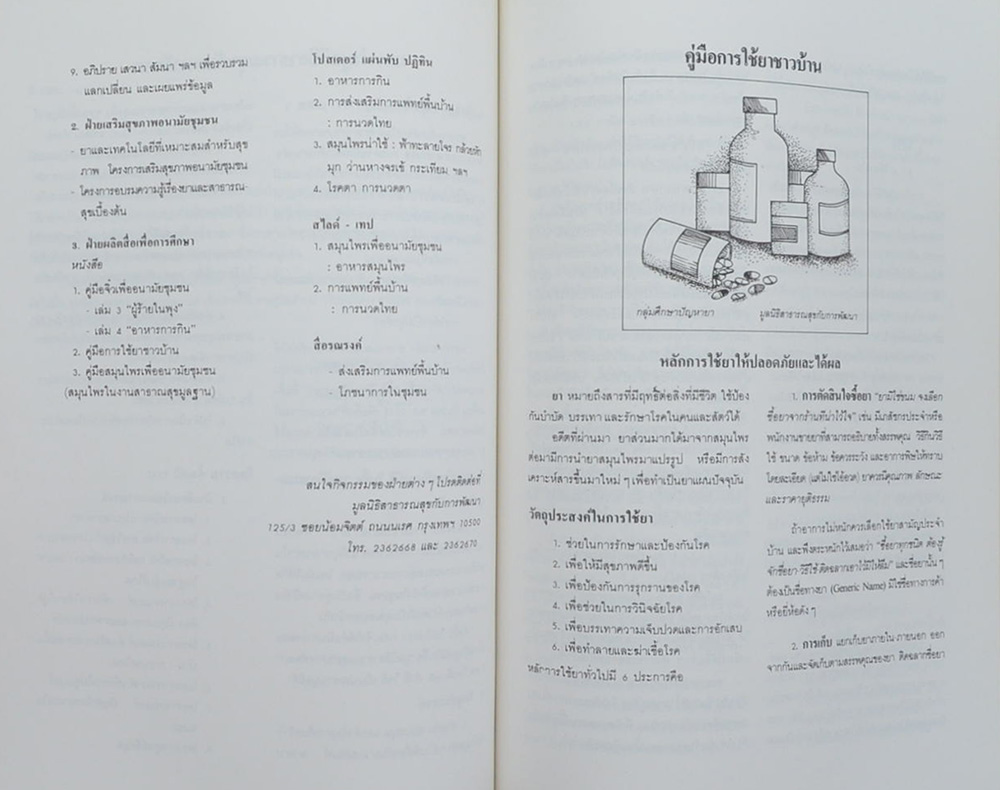 9. อภิปราย เสวนา สัมนา ฯลฯ เพื่อรวบรวม
แลกเปลี่ยน และเผยแพร่ข้อมูล
2. ฝ่ายเสริมสุขภาพอนามัยชุมชน
- ยาและเทคโนโลยีที่เหมาะสมสำหรับสุข
ภาพ โครงการเสริมสุขภาพอนามัยชุมชน
- โครงการอบรมความรู้เรื่องยาและสาธารณ-
สุขเบื้องต้น
3. ฝ่ายผลิตสื่อเพื่อการศึกษา
หนังสือ
1. คู่มือจิ๋วเพื่ออนามัยชุมชน
- เล่ม 3 "ผู้ร้ายในพุง"
- เล่ม 4 "อาหารการกิน"
2. คู่มือการใช้ยาชาวบ้าน
3. คู่มือสมุนไพรเพื่ออนามัยชุมชน
(สมุนไพรในงานสาธาณสุขมูลฐาน)
โปสเตอร์ แผ่นพับ ปฏิทิน
1. อาหารการกิน
2. การส่งเสริมการแพทย์พื้นบ้าน
: การนวดไทย
3. สมุนไพรน่าใช้ : ฟ้าทะลายโจร กล้วยหัก
มุก ว่านหางจรเข้ กระเทียม ฯลฯ
4. โรคตา การนวดตา
สไลด์ - เทป
1. สมุนไพรเพื่ออนามัยชุมชน
: อาหารสมุนไพร
2. การแพทย์พื้นบ้าน
: การนวดไทย
สื่อรณรงค์
- ส่งเสริมการแพทย์พื้นบ้าน
- โภชนาการในชุมชน
สนใจกิจกรรมของฝ่ายต่าง ๆ โปรดติดต่อที่
มูลนิธิสาธารณสุขกับการพัฒนา
125/3 ซอยน้อมจิตต์ ถนนนเรศ กรุงเทพฯ 10500
โทร. 2362668 และ 2362670
คู่มือการใช้ยาชาวบ้าน
กลุ่มศึกษาปัญหายา มูลนิธิสาธารณสุขกับการพัฒนา
หลักการใช้ยาให้ปลอดภัยและได้ผล
ยา หมายถึงสารที่มีฤทธิ์ต่อสิ่งที่มีชีวิต ใช้ป้อง
กันบำบัด บรรเทา และรักษาโรคในคนและสัตว์ได้
อดีตที่ผ่านมา ยาส่วนมากได้มาจากสมุนไพร
ต่อมามีการนำยาสมุนไพรมาแปรรูป หรือมีการสัง
เคราะห์สารขึ้นมาใหม่ ๆ เพื่อทำเป็นยาแผนปัจจุบัน
วัตถุประสงค์ในการใช้ยา
1. ช่วยในการรักษาและป้องกันโรค
2. เพื่อให้มีสุขภาพดีขึ้น
3. เพื่อป้องกันการรุกรานของโรค
4. เพื่อช่วยในการวินิจฉัยโรค
5. เพื่อบรรเทาความเจ็บปวดและการอักเสบ
6. เพื่อทำลายและฆ่าเชื้อโรค
หลักการใช้ยาทั่วไปมี 6 ประการคือ
1. การตัดสินใจซื้อยา "ยามิใช่ขนม จงเลือก
ซื้อยาจากร้านที่น่าไว้ใจ" เช่น มีเภสัชกรประจำหรือ
พนักงานขายยาที่สามารถอธิบายทั้งสรรพคุณ วิธีกินวิธี
ใช้ ขนาด ข้อห้าม ข้อควรระวัง และอาการพิษให้ทราบ
โดยละเอียด (แต่ไม่ใช่โอ้อวด) ยาควรมีคุณภาพ ลักษณะ
และราคายุติธรรม
ถ้าอาการไม่หนักควรเลือกใช้ยาสามัญประจำ
บ้าน และพึงตระหนักไว้เสมอว่า "ซื้อยาทุกชนิด ต้องรู้
จักชื่อยา วิธีใช้ ติดฉลากเอาไว้มิให้ลืม" และชื่อยานั้น ๆ
ต้องเป็นชื่อทางยา (Generic Name) มิใช่ชื่อทางการค้า
หรือยี่ห้อดัง ๆ
2. การเก็บ แยกเก็บยาภายใน-ภายนอก ออก
จากกันและจัดเก็บตามสรรพคุณของยา ติดฉลากชื่อยา